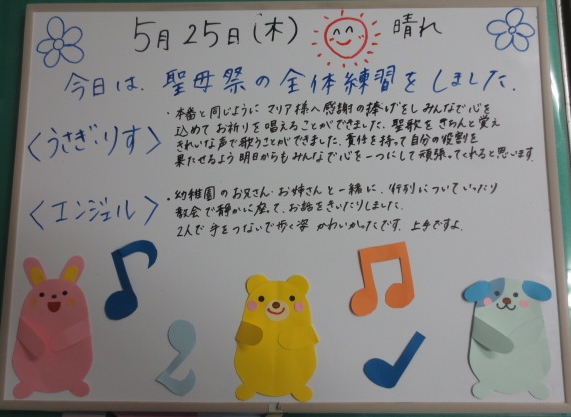 5月25日(木) 晴れ
今日は、聖母祭の全体練習をしました。
〈うさぎ・りす〉
・本番と同じように マリア様へ感謝の捧げをし みんなで心を
込めて お祈りを唱えることができました。聖歌を きちんと覚え
きれいな声で歌うことができました。責任を持って自分の役割を
果たせるよう 明日からもみんなで心を一つにして頑張ってくれると思います。
〈エンジェル〉
・幼稚園のお兄さん・お姉さんと一緒に、行列についていったり
教会で静かに座って、お話をきいたりしました。
2人で手をつないで歩く姿 かわいかったです。上手ですよ。